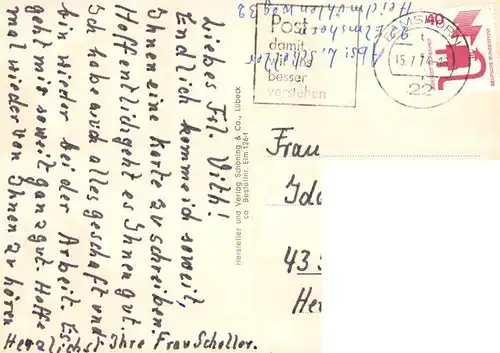 Liebes Frl. Vith!
Endlich komme ich soweit,
Ihnen eine Karte zu schreiben.
Hoffentlich geht es Ihnen gut.
Ich habe auch alles geschafft und
bin wieder bei der Arbeit. Es
geht mir soweit ganz gut. Hoffe
mal wieder von Ihnen zu hören
Herzlichst Ihre Frau Scheller.
Hersteller und Verlag Schöning & Co., Lübeck
Bestellnr. Elm 126-1
Abs: L. Scheller
22 Elmshorn
Post
damit
Sie sich
besser
verstehen
MSHORN
15.7.74
22
40
DEUTSCHE BUNDESPOST
Frau
Ida
43